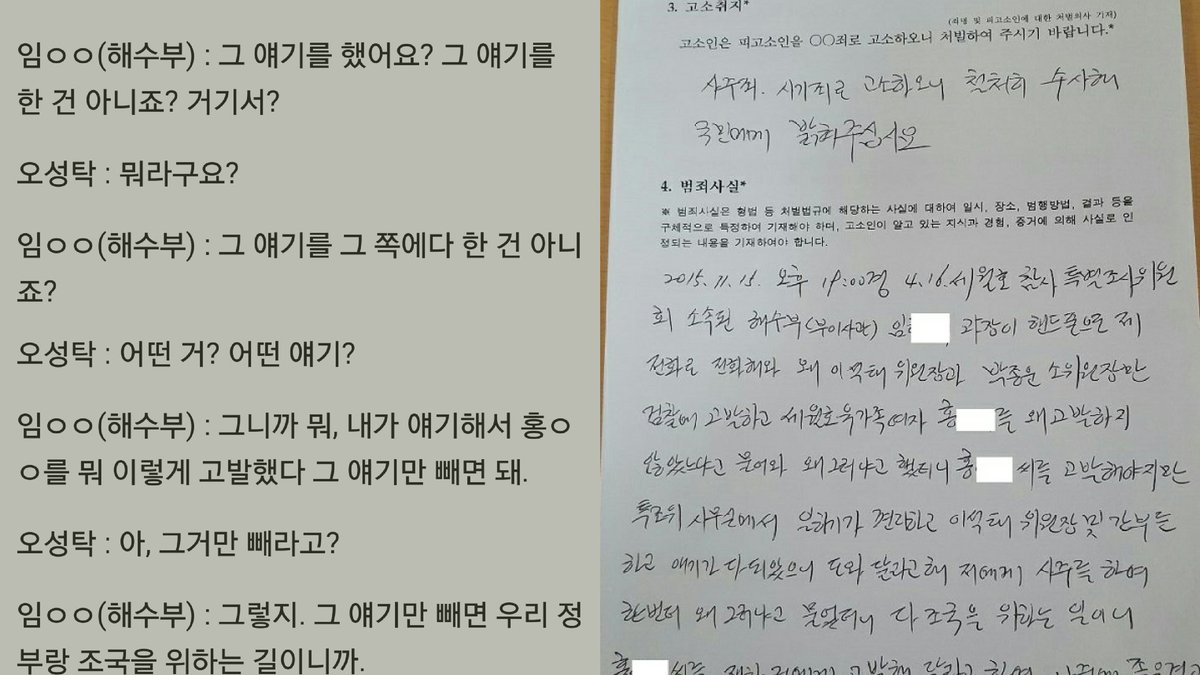 임ㅇㅇ(해수부) : 그 얘기를 했어요? 그 얘기를
한 건 아니죠? 거기서?
오성탁 : 뭐라구요?
임ㅇㅇ(해수부) : 그 얘기를 그 쪽에다 한 건 아니
죠?
오성탁 : 어떤 거? 어떤 얘기?
임ㅇㅇ(해수부) : 그니까 뭐, 내가 얘기해서 홍ㅇ
ㅇ를 뭐 이렇게 고발했다 그 얘기만 빼면 돼.
오성탁 : 아, 그거만 빼라고?
임ㅇㅇ(해수부) : 그렇지. 그 얘기만 빼면 우리 정
부랑 조국을 위하는 길이니까.
3. 고소취지*
(죄명 및 피고소인에 대한 처벌의사 기재)
고소인은 피고소인을 ○○죄로 고소하오니 처벌하여 주시기 바랍니다.*
사주죄. 사기죄로 고소하오니 철처히 수사해
국민에게 밝혀주십시요
4. 범죄사실*
※ 범죄사실은 형법 등 처벌법규에 해당하는 사실에 대하여 일시, 장소, 범행방법, 결과 등을
구체적으로 특정하여 기재해야 하며, 고소인이 알고 있는 지식과 경험, 증거에 의해 사실로 인
정되는 내용을 기재하여야 합니다.
2015. 11. 15. 오후 19:00경 4.16.세월호 참사 특별조사위원
회 소속된 해수부(부이사관) 임 과장이 핸드폰으로 제
전화로 전화해와 왜 이석태 위원장과 박종운 소위원장만
검찰에 고발하고 세월호유가족여자 홍 를 왜 고발하지
않았느냐고 물어와 왜그러냐고 했더니 홍 씨를 고발해야지만
특조위 사무실에서 일하기가 편리하고 이석태 위원장및 간부들
하고 얘기가 다되었으니 도와 달라고해 저에게 사주를 하여
한번더 왜 그러냐고 물었더니 다 조국을 위하는 일이니
홍 씨를